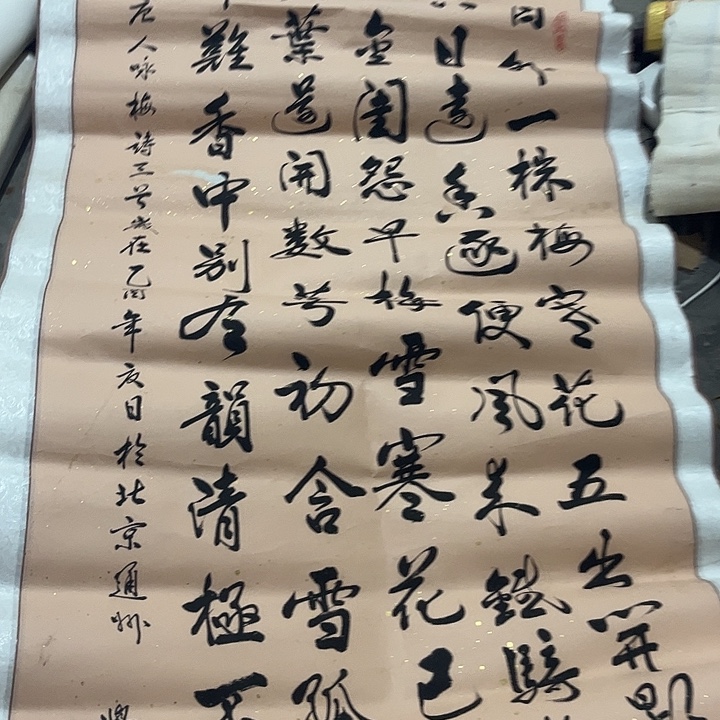 外一株梅寒花五出開影
日遠香逐便風来鐵騎
金閨怨早梅雪寒花已
葉還開數萼初含雪孤
難香中別有韻清極不
唐人咏梅詩三首歲在乙酉年夏日於北京通州